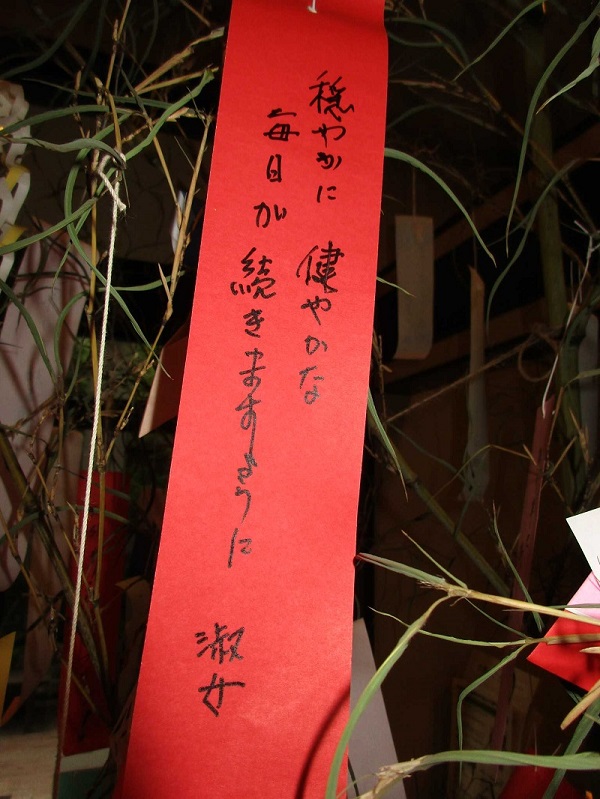 穏やかに 健やかな
毎日が 続きますように
淑女